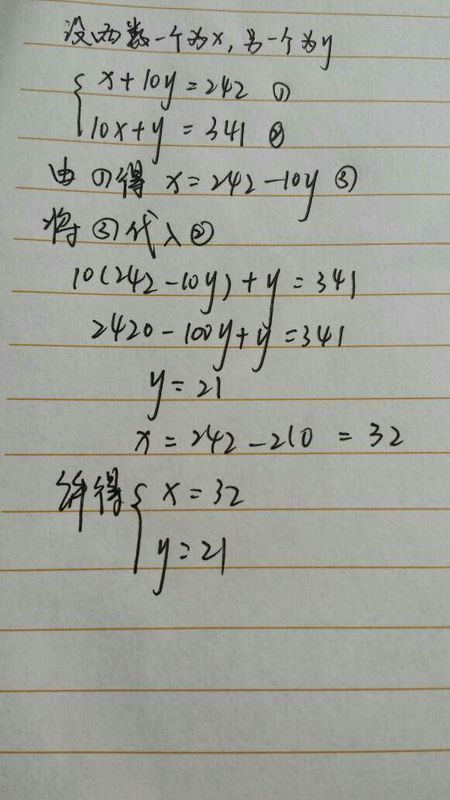 设两数一个为x,另一个为y
{ x+10y=242 ①
10x+y=341 ②
由①得 x=242-10y ③
将③代入②
10(242-10y)+y=341
2420-100y+y=341
y=21
x=242-210=32
解得{ x=32
y=21